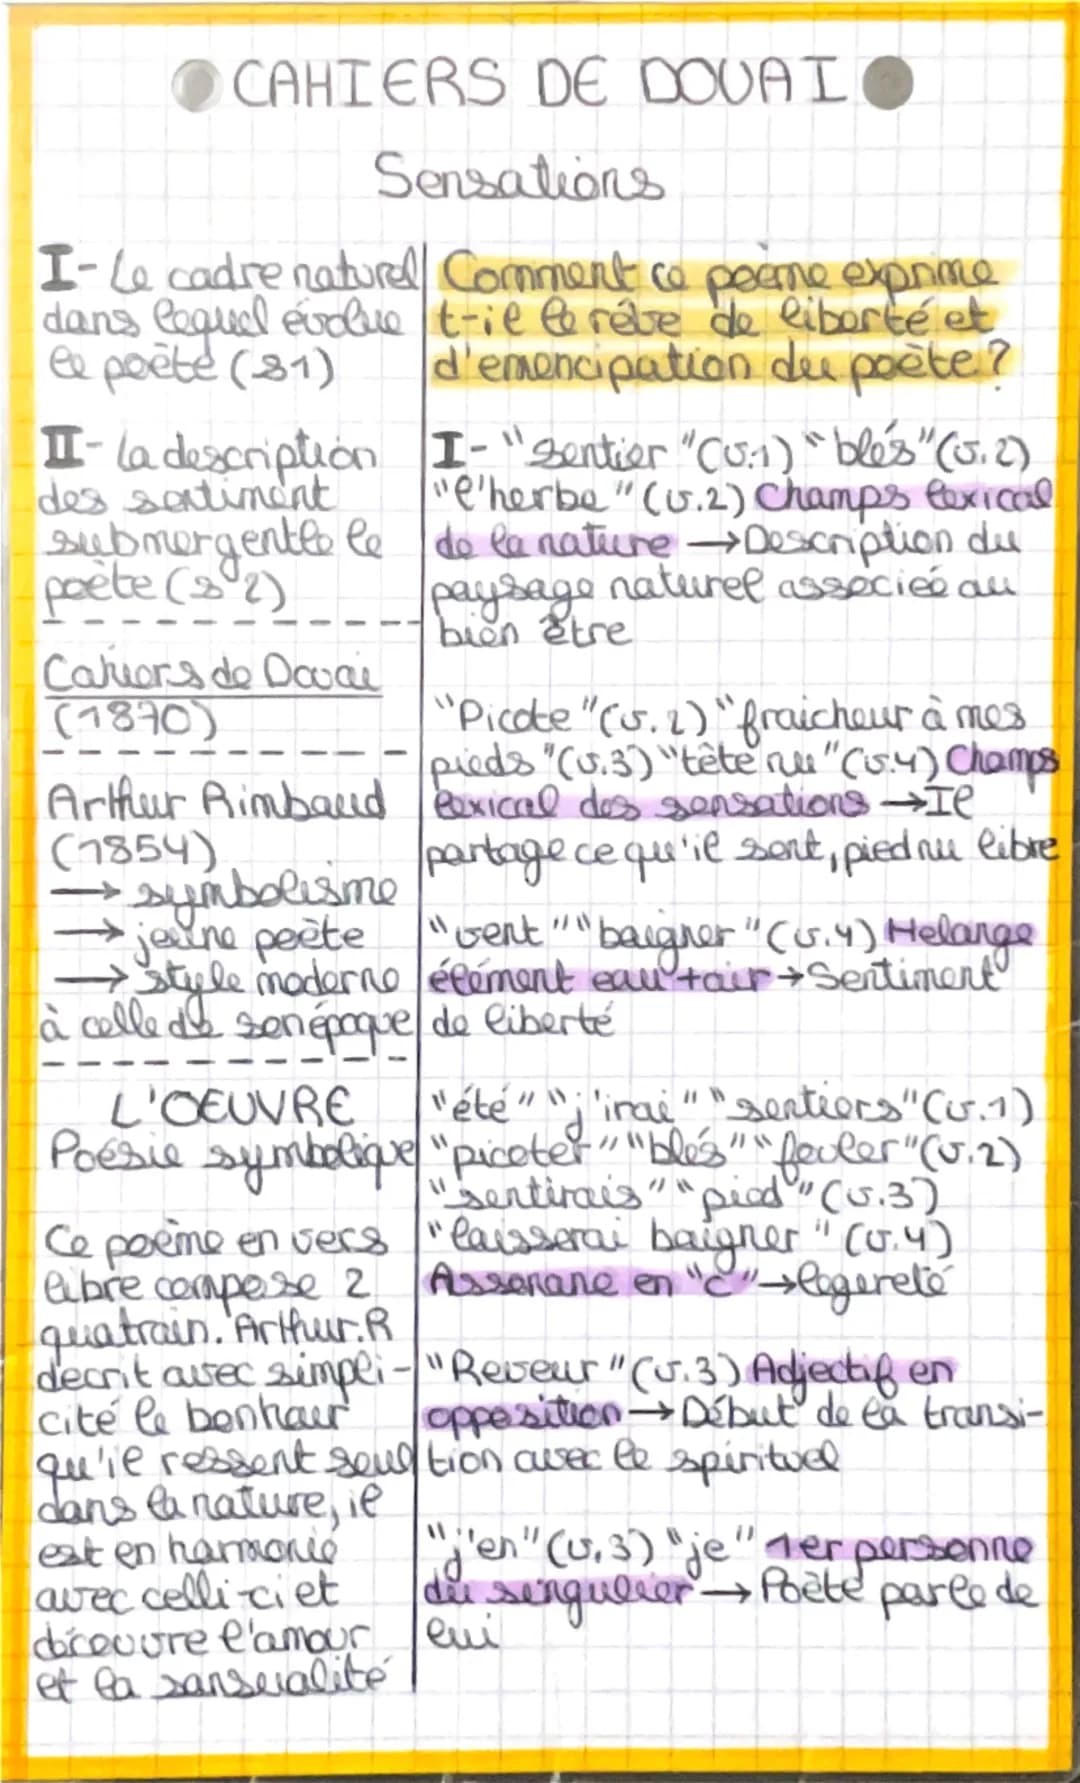 CAHIERS DE DOUAI
Sensations
I- Le cadre naturel
dans lequel évolue
le poète (s1)
II- La description
des sentiment
submergentle le
poète (s2)
Cahiers de Douai
(1870)
Arthur Rimbaud
(1854)
→ symbolisme
→ jeune poète
→ style moderne
à celle de son époque
L'OEUVRE
Poésie symbolique
Ce poème en vers
libre compose 2
quatrain. Arthur.R
decrit avec simpli-
cité le bonheur
qu'il ressent seul
dans la nature, il
est en harmonie
avec celli-ci et
découvre l'amour
et la sensualité
Comment ce poème exprime
t-il le rêve de liberté et
d'emencipation du poète ?
I- "Sentier" (v.1) "blés" (v.2)
"l'herbe" (v.2) Champs lexical
de la nature → Description du
paysage naturel associeé au
bien être
"Picote" (v.2) "fraicheur à mes
pieds" (v.3) "tête nu" (v.4) Champs
lexical des sensations → Il
partage ce qu'il sent, pied nu libre
"vent" "baigner" (v.4) Melange
élément eau + air → Sentiment
de liberté
"été" "j'irai" "sentiers" (v.1)
"picoter" "blés" "fouler" (v.2)
"sentirais" "pied" (v.3)
"laisserai baigner" (v.4)
Assonane en "c" → légereté
"Reveur" (v.3) Adjectif en
opposition → Début de la transi-
tion avec le spirituel
"j'en" (v.3) "je" 1er personne
du singulier → Poète parle de
lui